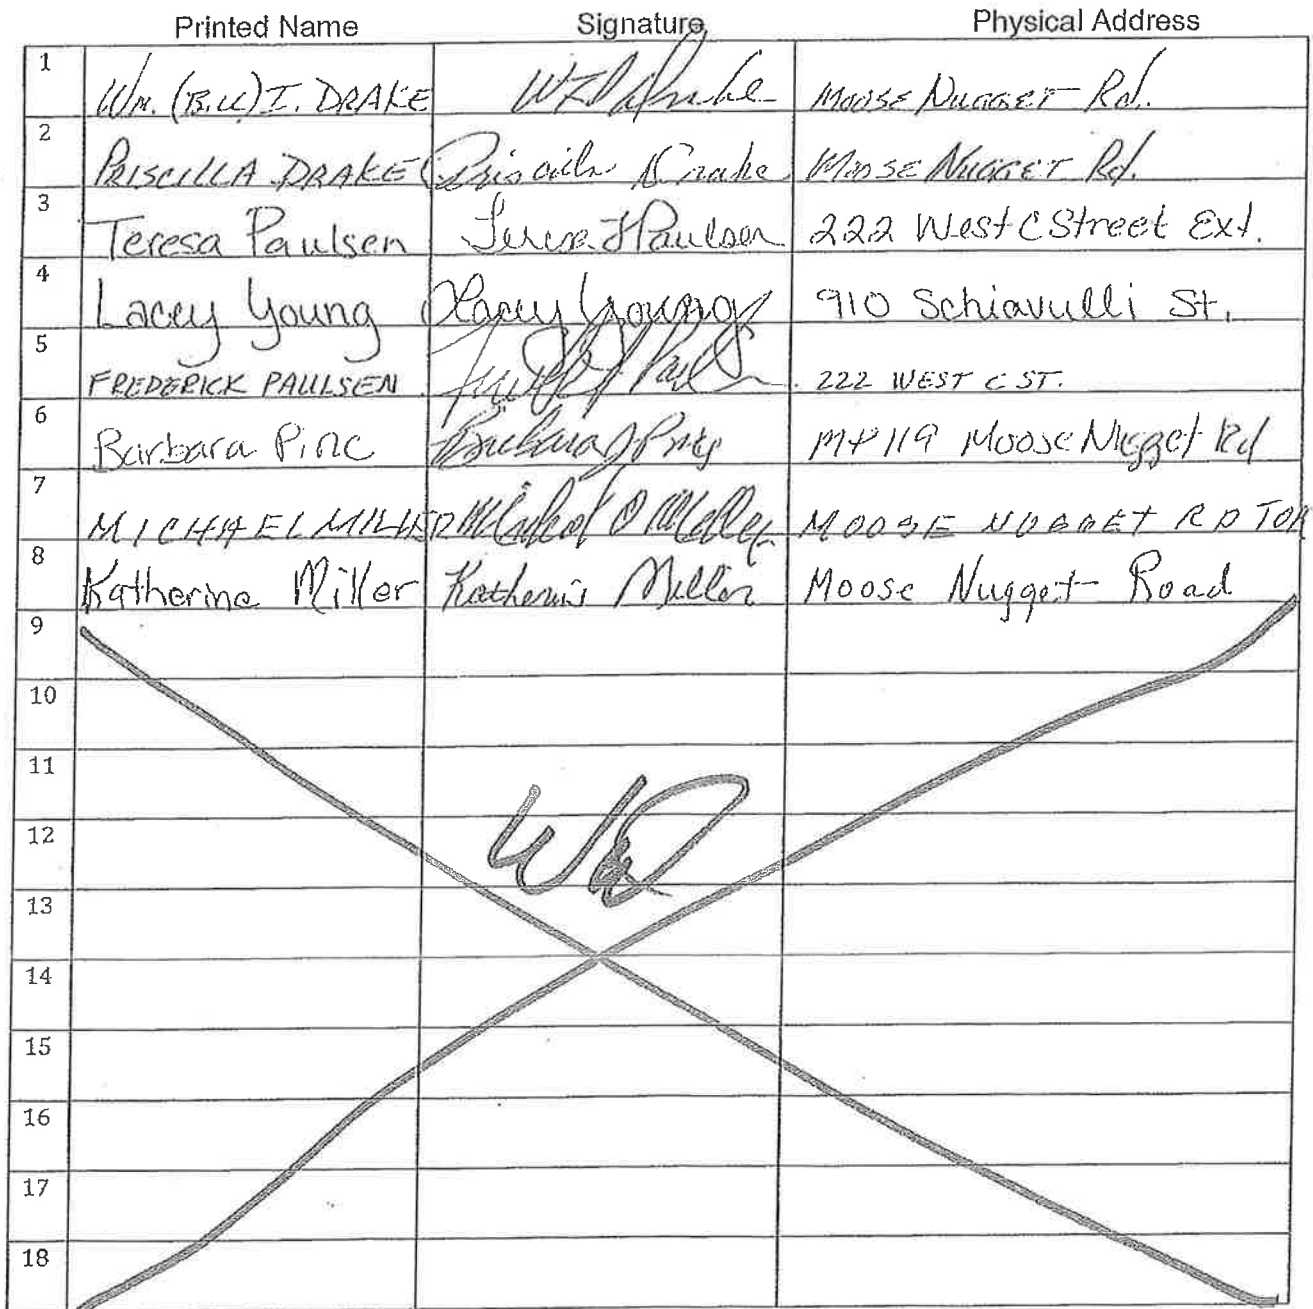 Printed Name Signature Physical Address
1 Wm. (BILL) I. DRAKE Moose Nugget Rd.
2 PRISCILLA DRAKE Priscilla Drake Moose Nugget Rd.
3 Teresa Paulsen Teresa J Paulsen 222 West C Street Ext.
4 Lacey Young Lacey Young 910 Schiavulli St.
5 FREDERICK PAULSEN 222 WEST C ST.
6 Barbara Pinc MP 119 Moose Nugget Rd
7 MICHAEL MILLER MOOSE NUGGET RD TOK
8 Katherine Miller Katherine Miller Moose Nugget Road
9
10
11
12
13
14
15
16
17
18